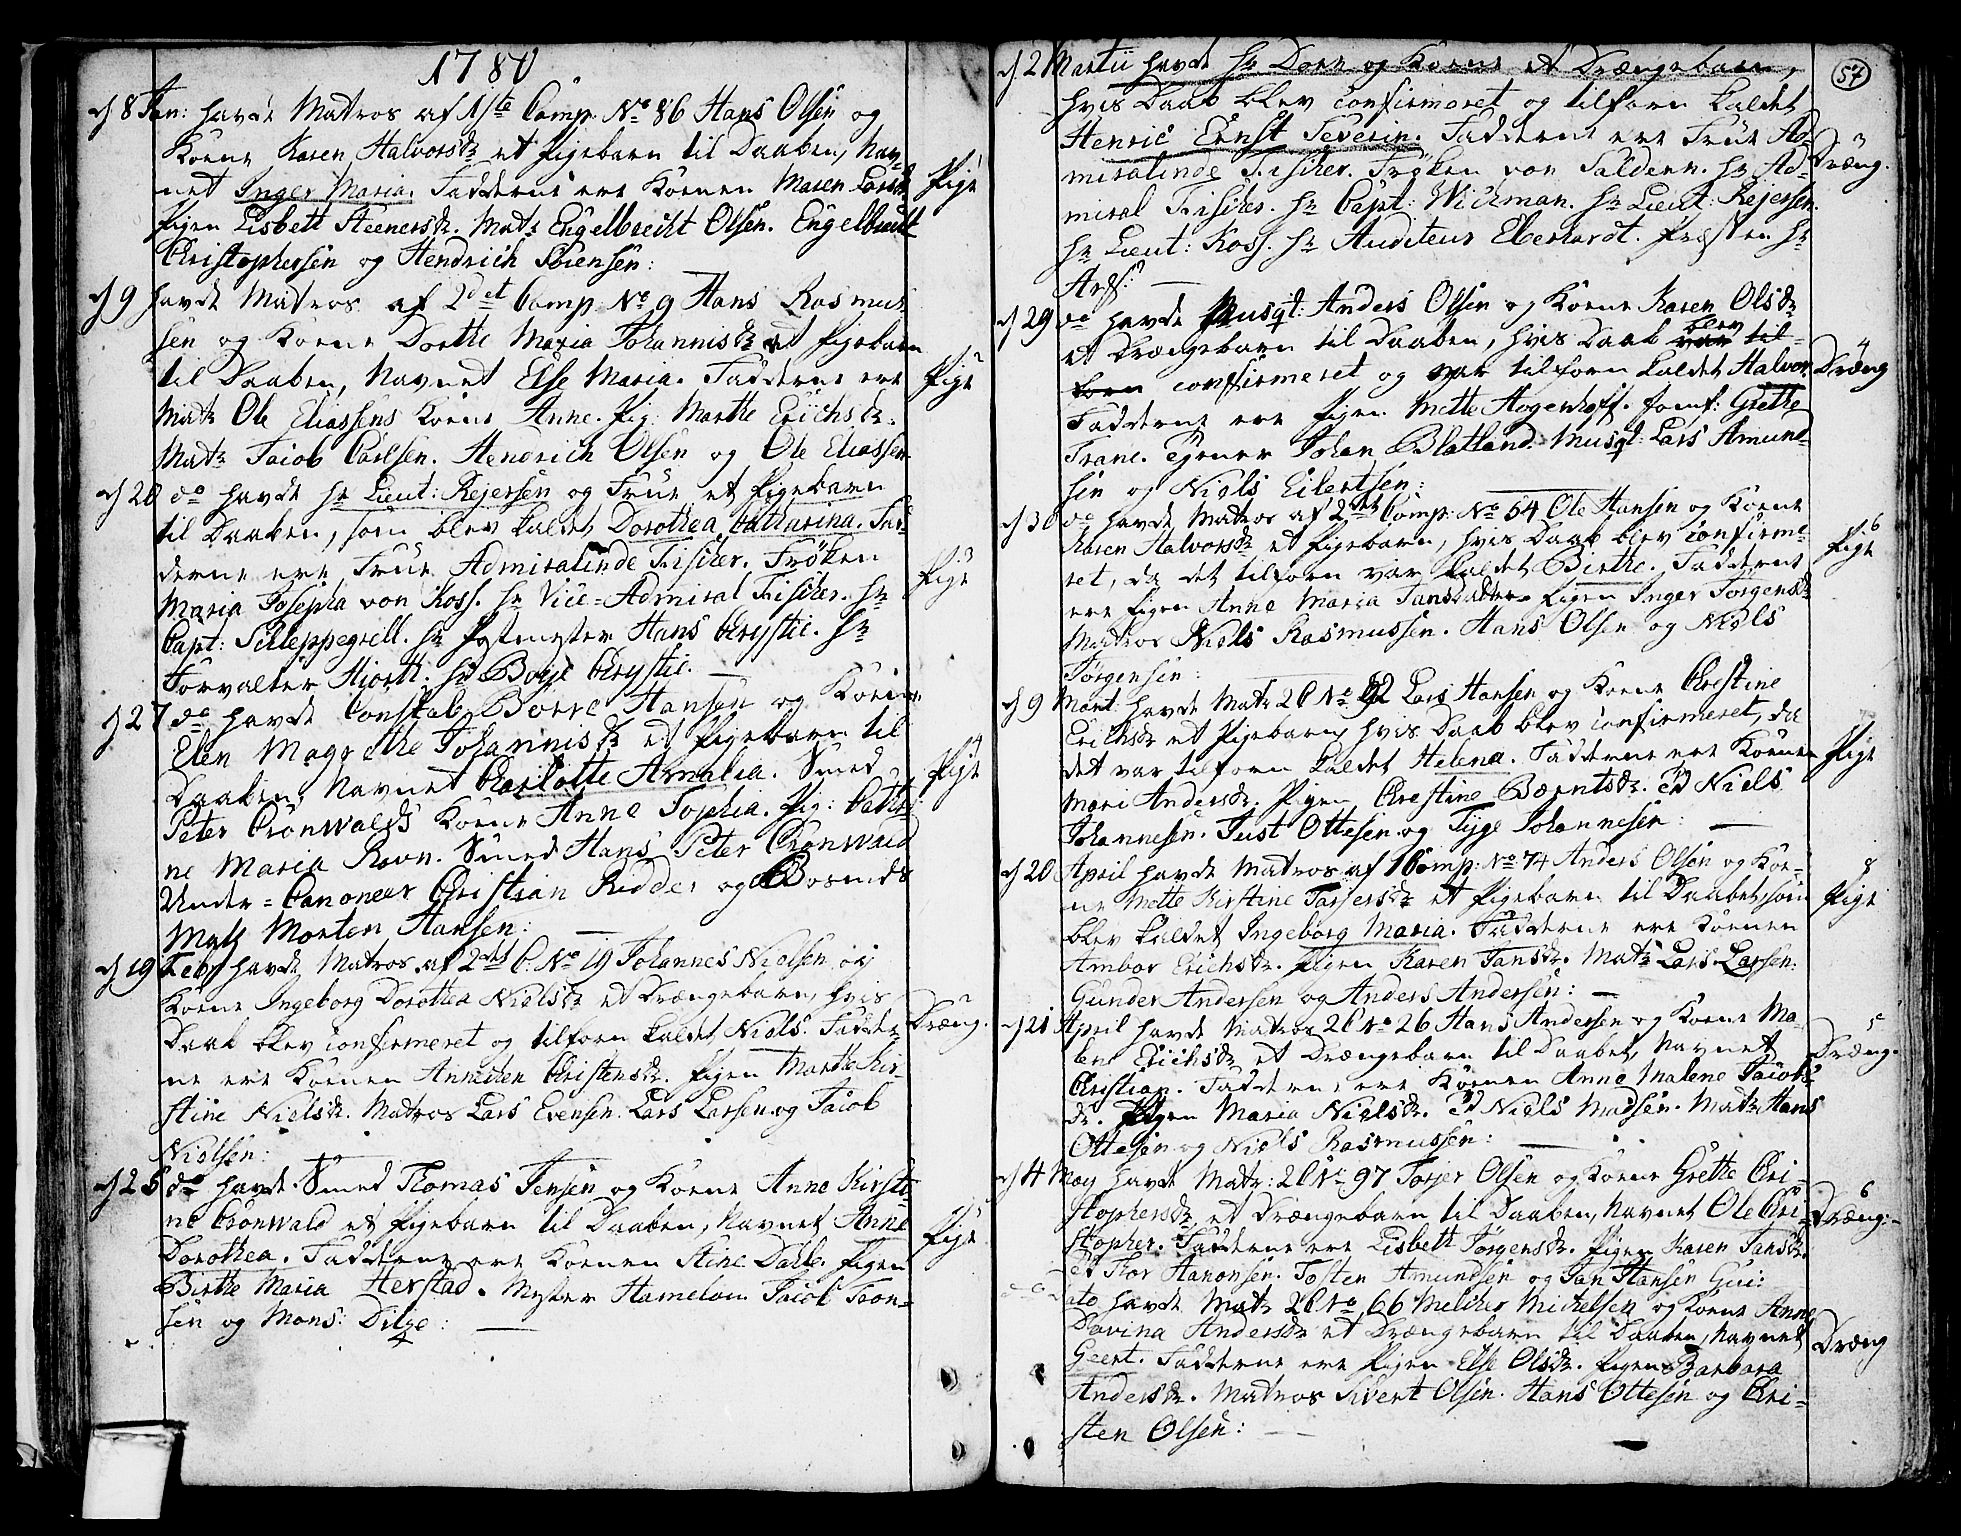 1780
d 8 Jan: havde Matros af 1ste Comp: No 86 Hans Olsen og
Konne Karen Halvorsdr et Pigebarn til Daaben, Nav-
net Inger Maria. Fadderne ere Konen Maren Larsdr
1
Pige
Pigen Lisbett Steenersdr. Matr Engelbrecht Olsen. Engelbrecht
Christophersen og Hendrich Sörensen:
d 9 havde Matros af 2det Comp: No 9 Hans Rasmus-
sen og Konne Dorthe Maria Johannisdr et Pigebarn
til Daaben, Navnet Else Maria. Fadderne ere
2
Pige
Matr Ole Eliassens Kone Anne. Pig: Marthe Erichsdr.
Matr Jacob Carlsen. Hendrich Olsen og Ole Eliassen
d 20 do havde Hr Lieut: Rejersen og Frue et Pigebarn
til Daaben, som blev kaldet Dorothea Catharina. Fad-
derne ere Frue Admiralinde Fischer. Fröken
3
Pige
Maria Josepha von Koss. Hr Vice-Admiral Fischer. Hr
Capt: Schleppegrell. Hr Postmester Hans Chrystie. Hr
Forvalter Hiorth. Hr Boije Chrystie.
d 27 do havde Constab. Börre Hansen og Konne
Elen Magrethe Johannisdr et Pigebarn til
Daaben, Navnet Charlotte Amalia. Smed
4
Pige
Peter Cronwalds Kone Anne Sophia. Pig: Cathri-
ne Maria Ravn. Smed Hans Peter Cronwald
Under-Canoneer Christian Ridder og Bosmds
Math Morten Hansen:
d 19 Febr havde Matros af 2det C: No 19 Johannes Nielsen og
Konne Ingeborg Dorothea Nielsdr et Drængebarn, hvis
Daab blev confirmeret og tilforn kaldet Niels. Fadder-
1
Dræng.
ne ere Konen Annichen Christensdr. Pigen Marthe Kir-
stine Nielsdr. Matros Lars Evensen. Lars Larsen og Jacob
Nielsen:
d 25 do havde Smed Thomas Jensen og Konne Anne Kirsti-
ne Cronwald et Pigebarn til Daaben, Navnet Anne
5
Pige
Dorothea. Fadderne ere Konen Stine Dahl. Pigen
Birthe Maria Herstad. Mester Hamelou. Jacob Tron-
sen og Mons: Dilge:
57
d 2 Martii havde Hr Dorn og Konne et Drængebarn,
hvis Daab blev confirmeret og tilforn kaldet
Henric Ernst Severin. Fadderne ere Frue Ad-
3
Dræng.
miralinde Fischer. Fröken von Saldern. Hr Ad-
miral Fischer. Hr Capt: Wickman. Hr Lieut: Rejersen.
Hr Lieut: Koss. Hr Auditeur Eberhardt. Præsten Hr
d 29 do havde Musqt: Anders Olsen og Konne Karen Olsdr
et Drængebarn til Daaben, hvis Daab blev
confirmeret og var tilforn kaldet Halvor.
4
Dræng
Fadderne ere Pigen Mette Hogenhoff. Jomf: Grethe
Trane. Johan Blatland. Musqt: Lars Amund-
sen og Niels Eilertsen:
d 30 do havde Matros af 2det Comp: No 54 Ole Hansen og Konne
Karen Halvorsdr et Pigebarn, hvis Daab blev confirme-
6
Pige
ret, da det tilforn var kaldet Birthe. Fadderne
ere Pigen Anne Maria Jansdatter. Pigen Inger Jörgensdr
Matros Niels Rasmussen. Hans Olsen og Niels
Jörgensen:
d 9 Mart: havde Matr 2C No 92 Lars Hansen og Konne Christine
Erichsdr et Pigebarn, hvis Daab blev confirmeret, da
7
Pige
det var tilforn kaldet Helena. Fadderne ere Konen
Mari Andersdr. Pigen Christine Berntsdr. Niels
Johannesen. Just Ottesen og Tyge Johannesen:
d 20 April havde Matros af 1 Comp: No 74 Anders Olsen og Kon-
ne Mette Kirstine Torgersdr et Pigebarn til Daaben, som
8
Pige
blev kaldet Ingeborg Maria. Fadderne ere Konen
Ambor Erichsdr. Pigen Karen Jansdr. Matr Lars Larsen.
Gunder Andersen og Anders Andersen:
d 21 April havde Matros 2C No 26 Hans Andersen og Konne Ma-
len Erichsdr et Drængebarn til Daaben, Navnet
5
Dræng.
Christian. Fadderne ere Konen Anne Malene Jacobs-
dr. Pigen Maria Nielsdr. Niels Madsen. Matr Hans
Ottesen og Niels Rasmussen:
d 4 May havde Matr: 2C No 97 Torjer Olsen og Konne Grethe Chri-
stophersdr et Drængebarn til Daaben, Navnet Ole Chri-
6
Dræng.
stopher. Fadderne ere Lisbett Jörgensdr. Pigen Karen Jansdr.
Thor Hanonsen. Tosten Amundsen og Jan Hansen
dto havde Matr 2C No 66 Melcher Michelsen og Konne Anne
Davina Andersdr et Drængebarn til Daaben, Navnet
Dræng
Geert. Fadderne ere Pigen Else Olsdr. Pigen Barbara
Andersdr. Matros Sivert Olsen. Hans Ottesen og Chri-
sten Olsen: